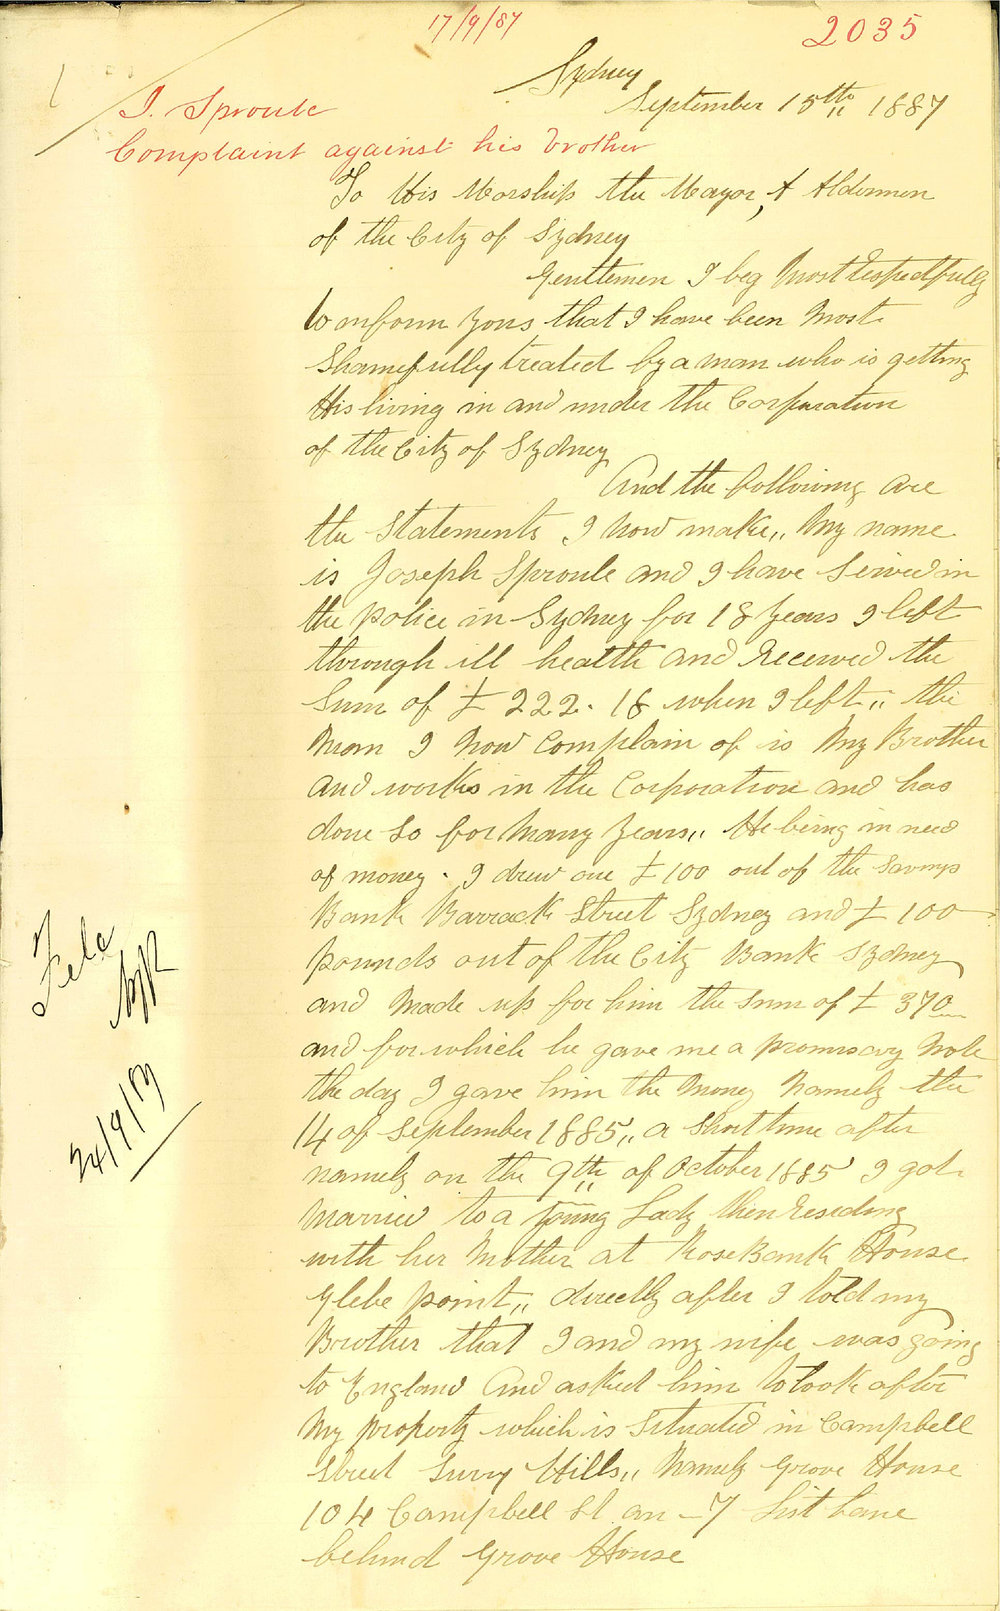 17/9/87
2035
Sydney
September 15th 1887
J. Sproule
Complaint against his brother
To His Worship the Mayor, & Aldermen
of the City of Sydney
Gentlemen I beg Most respectfully
to inform yous that I have been Most
Shamefully treated by a man who is getting
His living in and under the Corporation
of the City of Sydney
And the following are
the Statements I now make,, My name
is Joseph Sproule and I have Served in
the police in Sydney for 18 years I left
through ill health and Received the
Sum of £222.18 when I left,, the
Man I now Complain of is My Brother
and works in the Corporation and has
done so for Many years,, He being in need
of money. I drew one £100 out of the Savings
Bank Barrack Street Sydney and £100
pounds out of the City Bank Sydney
and Made up for him the Sum of £370
and for which he gave me a promissory Note
the day I gave him the Money Namely the
14 of September 1885,, a Short time after
namely on the 9th of October 1885 I got
Married to a young Lady then Residing
with her Mother at RoseBank House
Glebe point,, directly after I told my
Brother that I and my wife was going
to England And asked him to look after
My property which is Situated in Campbell
Street Surry Hills,, Namely Grove House
104 Campbell St an 7 Lane
behind Grove House
24/9/87